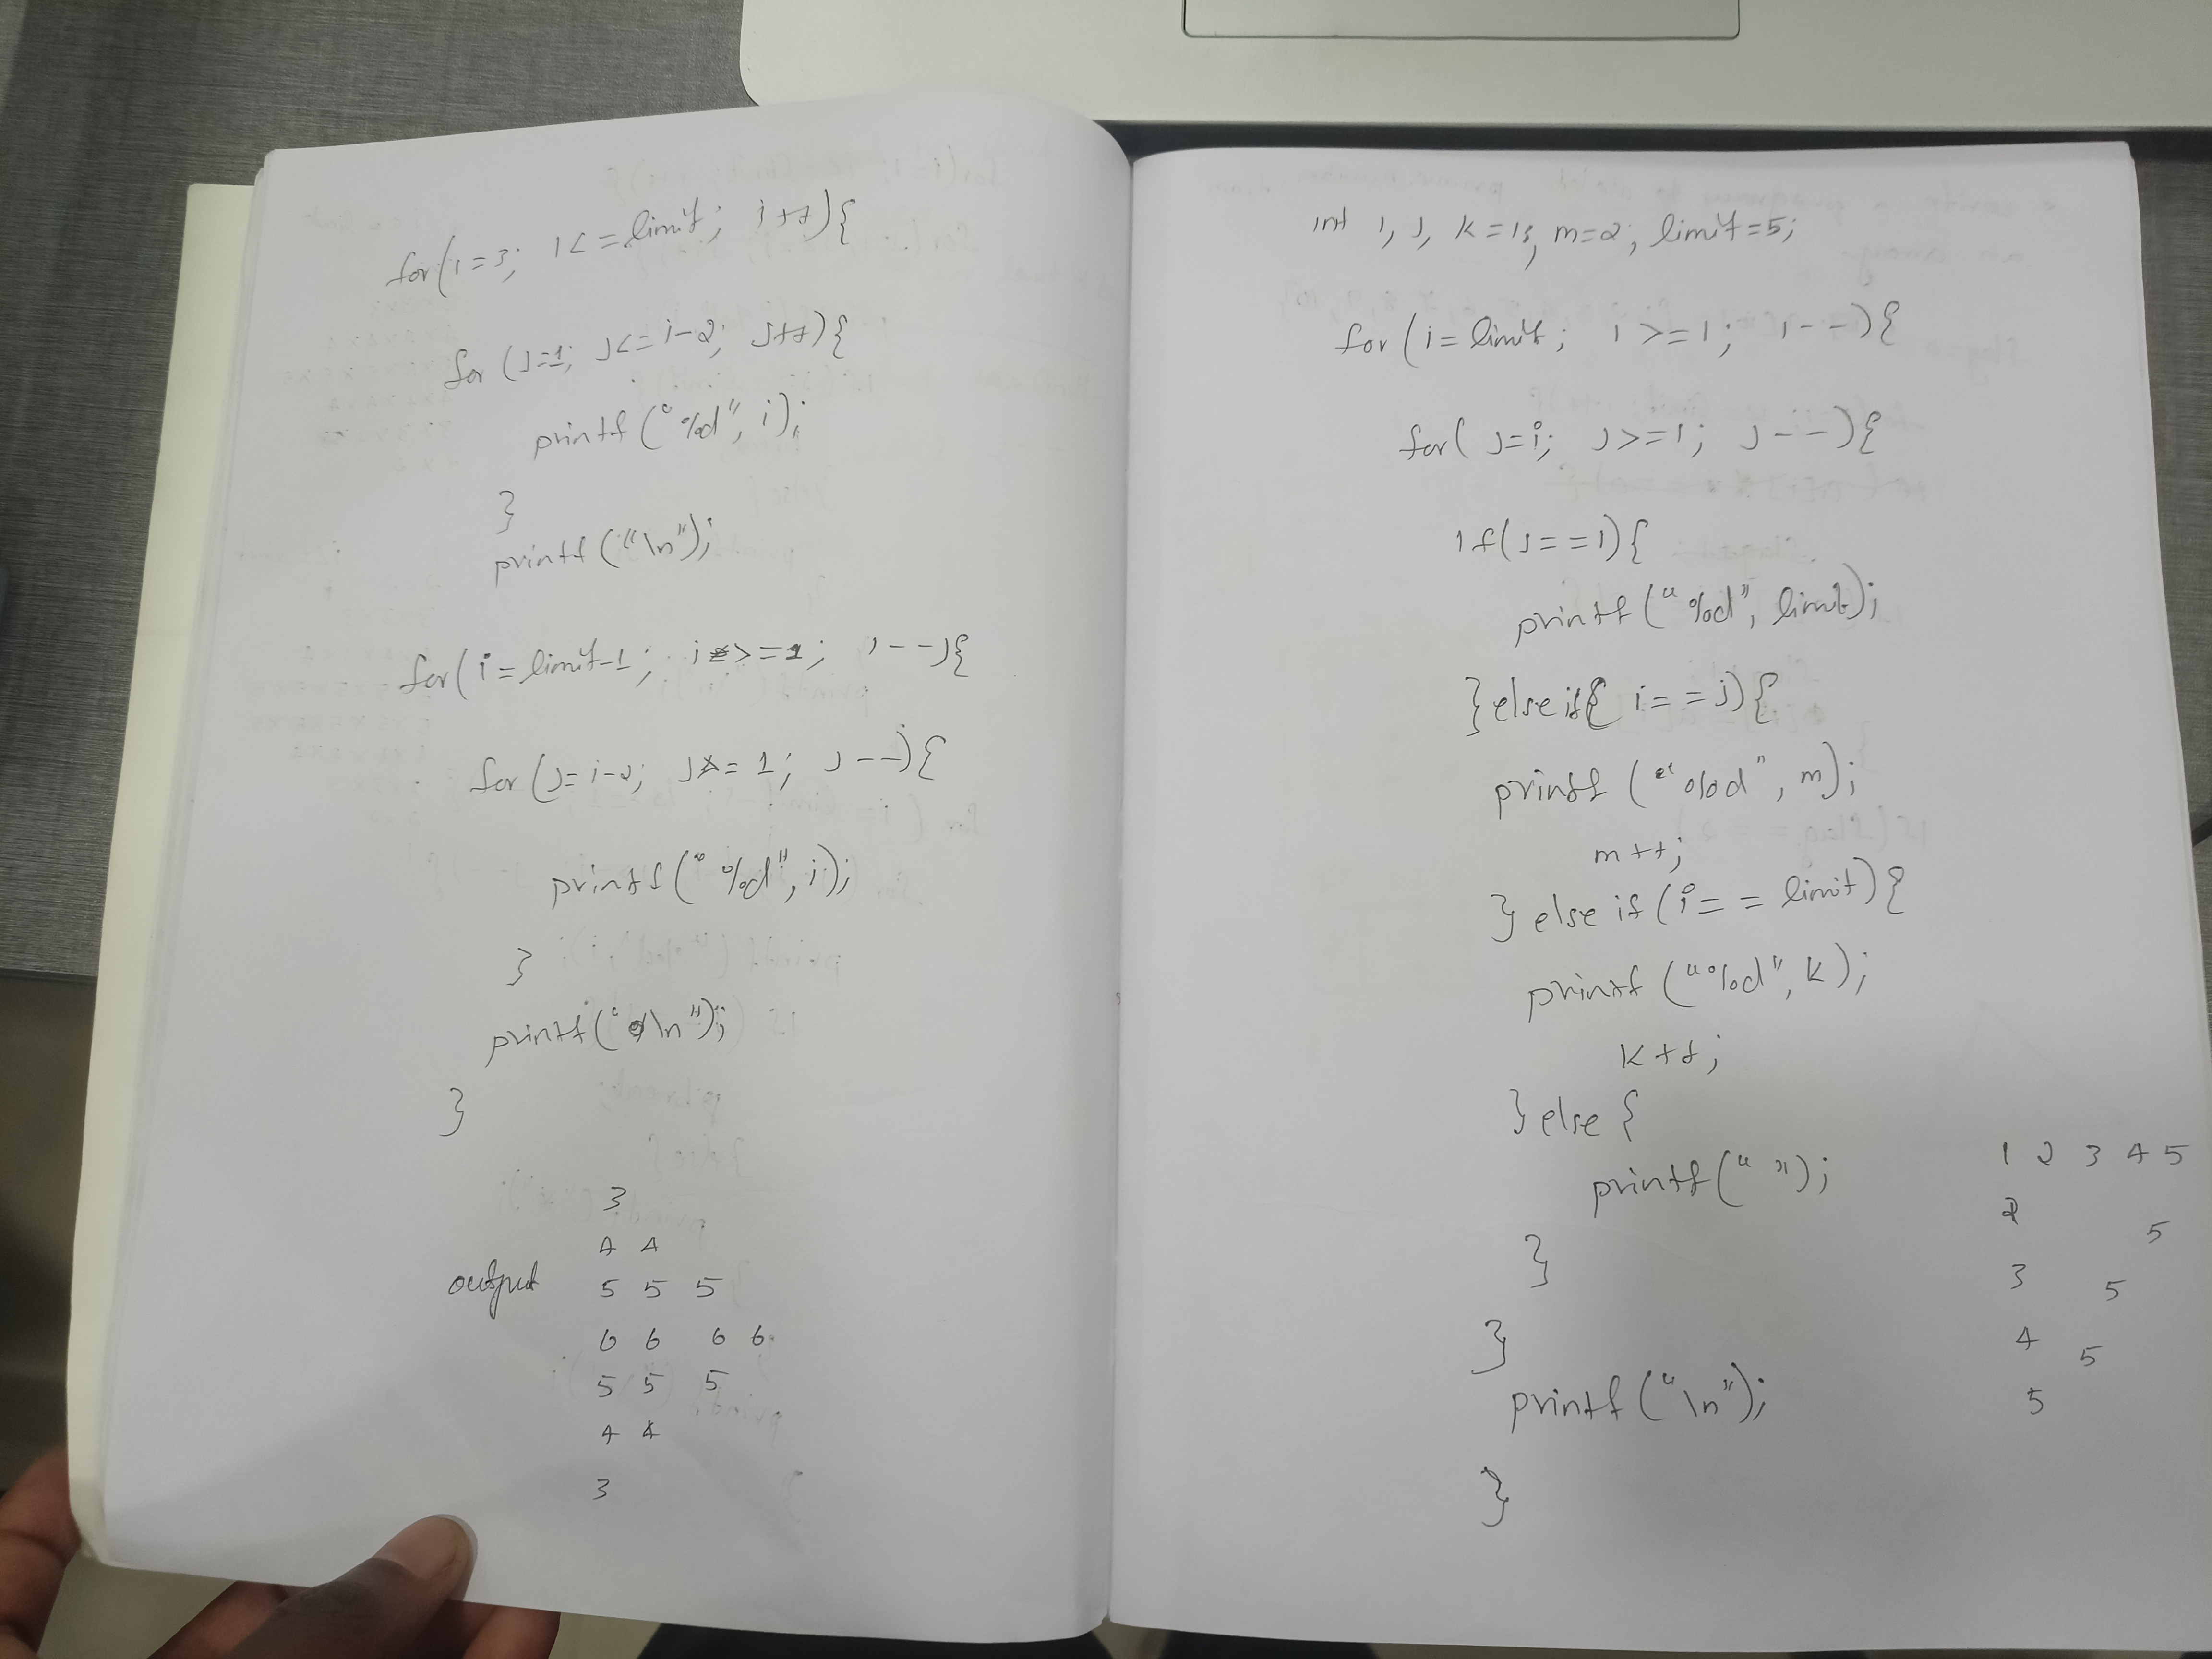 for(i=3; i<=limit; i++){
for (j=1; j<=i-2; j++){
printf("%d", i);
}
printf("\n");
for(i=limit-1; i>=1; i--){
for(j=i-2; j>=1; j--){
printf("%d", i);
}
printf("\n");
}
output
3
4 4
5 5 5
6 6 6 6
5 5 5
4 4
3
int i, j, k=1, m=2, limit=5;
for(i=limit; i>=1; i--){
for( j=i; j>=1; j--){
if(j==1){
printf("%d", limit);
}else if( i==j){
printf("%d", m);
m++;
} else if(i==limit){
printf("%d", k);
k++;
}else{
printf(" ");
}
}
printf("\n");
}
1 2 3 4 5
2 5
3 5
4 5
5